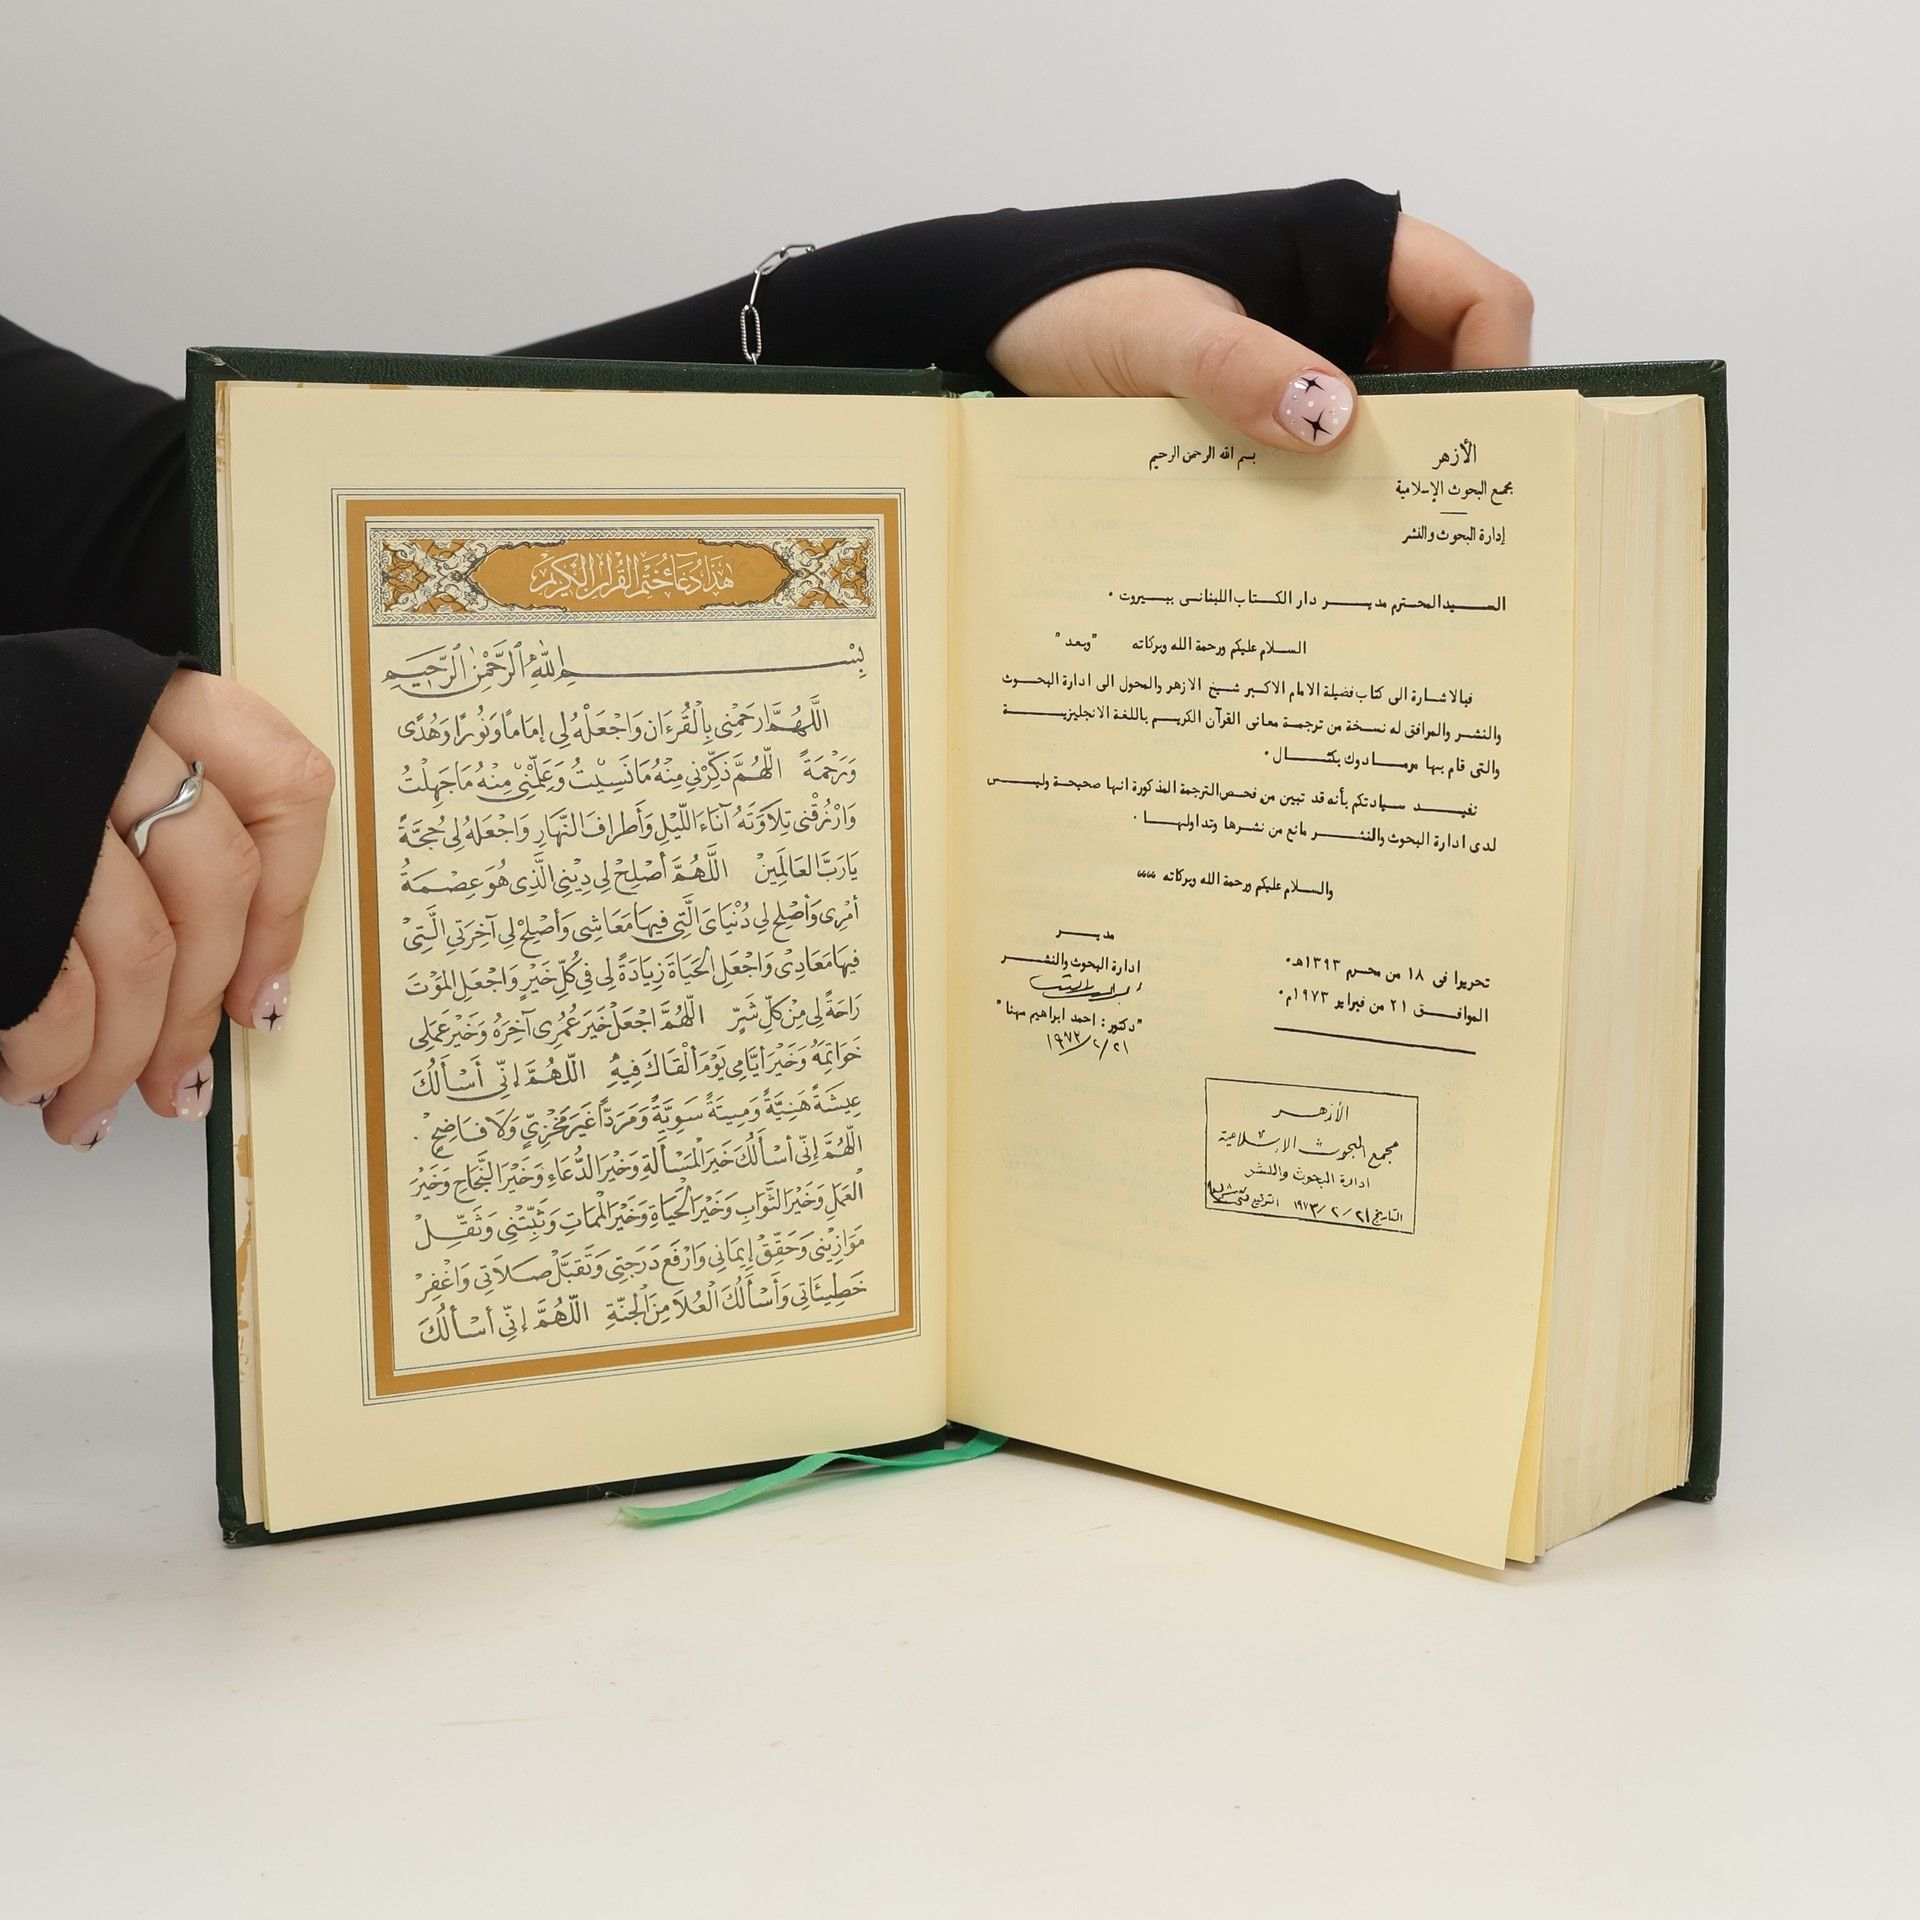 هذا دعاء ختم القرآن الكريم
بِسْمِ اللهِ الرَّحْمٰنِ الرَّحِيمِ
اللَّهُمَّ ارْحَمْنِي بِالْقُرْءَانِ وَاجْعَلْهُ لِي إِمَامًا وَنُورًا وَهُدًى
وَرَحْمَةً اللَّهُمَّ ذَكِّرْنِي مِنْهُ مَا نَسِيتُ وَعَلِّمْنِي مِنْهُ مَا جَهِلْتُ
وَارْزُقْنِي تِلَاوَتَهُ آنَاءَ اللَّيْلِ وَأَطْرَافَ النَّهَارِ وَاجْعَلْهُ لِي حُجَّةً
يَارَبَّ العَالَمِينْ اللَّهُمَّ أَصْلِحْ لِي دِينِي الَّذِي هُوَ عِصْمَةُ
أَمْرِي وَأَصْلِحْ لِي دُنْيَايَ الَّتِي فِيهَا مَعَاشِي وَأَصْلِحْ لِي آخِرَتِي الَّتِي
فِيهَا مَعَادِي وَاجْعَلِ الحَيَاةَ زِيَادَةً لِي فِي كُلِّ خَيْرٍ وَاجْعَلِ المَوْتَ
رَاحَةً لِي مِنْ كُلِّ شَرٍّ اللَّهُمَّ اجْعَلْ خَيْرَ عُمْرِي آخِرَهُ وَخَيْرَ عَمَلِي
خَوَاتِمَهُ وَخَيْرَ أَيَّامِي يَوْمَ أَلْقَاكَ فِيهِ اللَّهُمَّ إِنِّي أَسْأَلُكَ
عِيشَةً هَنِيَّةً وَمِيتَةً سَوِيَّةً وَمَرَدًّا غَيْرَ مُخْزِيٍّ وَلَا فَاضِحٍ .
اللَّهُمَّ إِنِّي أَسْأَلُكَ خَيْرَ المَسْأَلَةِ وَخَيْرَ الدُّعَاءِ وَخَيْرَ النَّجَاحِ وَخَيْرَ
العَمَلِ وَخَيْرَ الثَّوَابِ وَخَيْرَ الْحَيَاةِ وَخَيْرَ المَمَاتِ وَثَبِّتْنِي وَثَقِّلْ
مَوَازِينِي وَحَقِّقْ إِيمَانِي وَارْفَعْ دَرَجَتِي وَتَقَبَّلْ صَلَاتِي وَاغْفِرْ
خَطِيئَاتِي وَأَسْأَلُكَ الْعُلَا مِنَ الجَنَّةِ اللَّهُمَّ إِنِّي أَسْأَلُكَ
الأزهر
بسم الله الرحمن الرحيم
مجمع البحوث الإسلامية
إدارة البحوث والنشر
السيد المحترم مدير دار الكتاب اللبنانى ببيروت .
السلام عليكم ورحمة الله وبركاته "وبعد"
فبالاشارة الى كتاب فضيلة الامام الاكبر شيخ الازهر والمحول الى ادارة البحوث
والنشر والمرافق له نسخة من ترجمة معانى القرآن الكريم باللغة الانجليزية
والتى قام بها مرمادوك بكثال .
نفيد سيادتكم بأنه قد تبين من فحص الترجمة المذكورة انها صحيحة وليس
لدى ادارة البحوث والنشر مانع من نشرها وتداولها .
والسلام عليكم ورحمة الله وبركاته ""
مدير
ادارة البحوث والنشر
"دكتور : احمد ابراهيم مهنا"
٢١/٢/١٩٧٣
تحريرا فى ١٨ من محرم ١٣٩٣هـ.
الموافق ٢١ من فبراير ١٩٧٣م.
الأزهر
مجمع البحوث الإسلامية
ادارة البحوث والنشر
التاريخ ٢١/٢/١٩٧٣ التوقيع